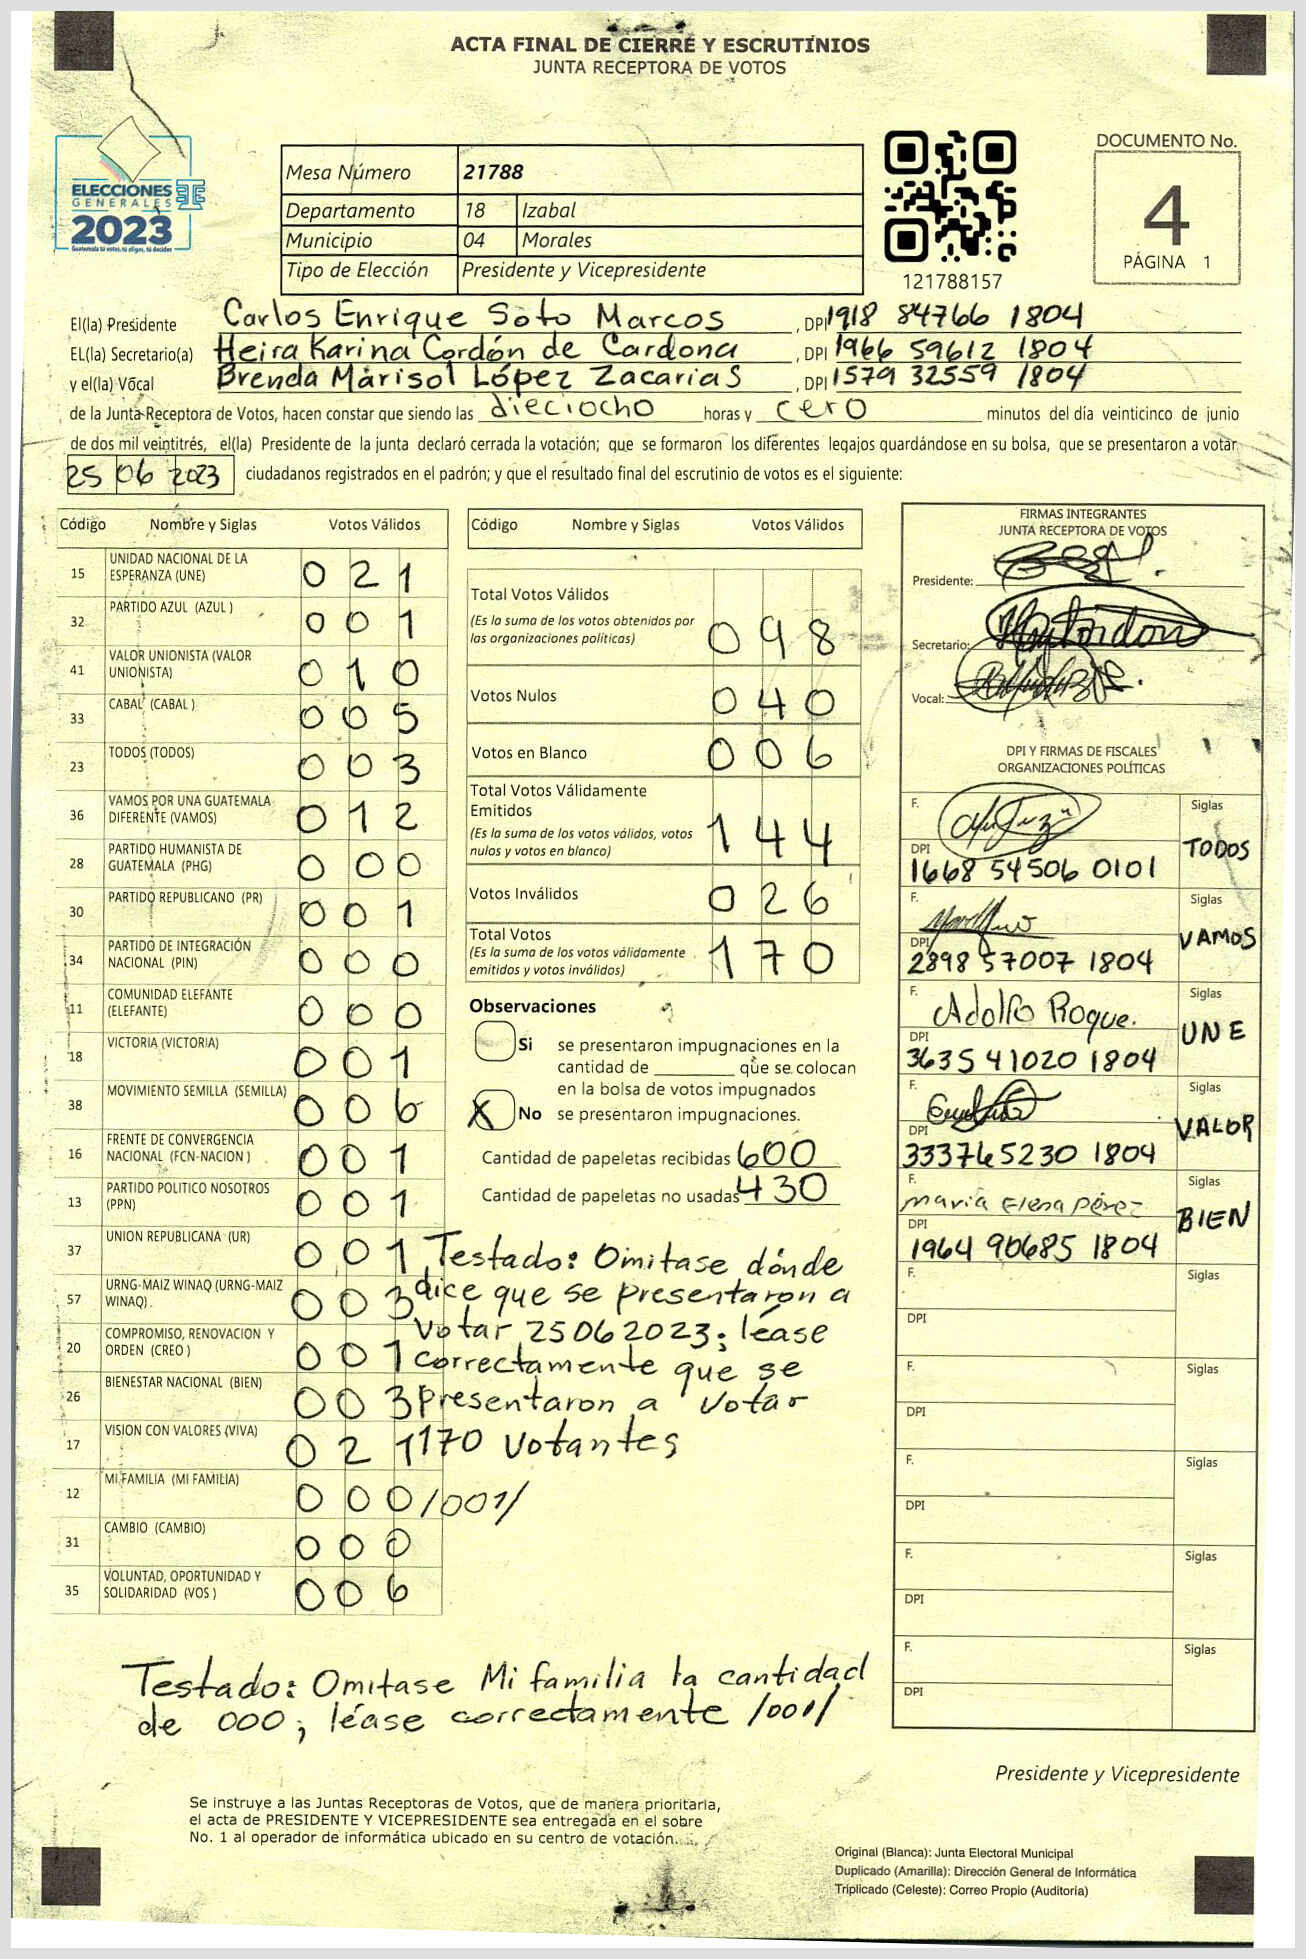 ACTA FINAL DE CIERRE Y ESCRUTINIOS
JUNTA RECEPTORA DE VOTOS
ELECCIONES
GENERALES
2023
Guatemala tú votas, tú eliges, tú decides
Mesa Número 21788
Departamento 18 Izabal
Municipio 04 Morales
Tipo de Elección Presidente y Vicepresidente
121788157
DOCUMENTO No.
4
PÁGINA 1
El(la) Presidente Carlos Enrique Soto Marcos, DPI 1918 84766 1804
EL(la) Secretario(a) Heira Karina Cordón de Cardona, DPI 1966 59612 1804
y el(la) Vocal Brenda Marisol López Zacarias, DPI 1579 32559 1804
de la Junta Receptora de Votos, hacen constar que siendo las dieciocho horas y cero minutos del día veinticinco de junio
de dos mil veintitrés, el(la) Presidente de la junta declaró cerrada la votación; que se formaron los diferentes legajos guardándose en su bolsa, que se presentaron a votar
25 06 2023 ciudadanos registrados en el padrón; y que el resultado final del escrutinio de votos es el siguiente:
Código Nombre y Siglas Votos Válidos
15 UNIDAD NACIONAL DE LA ESPERANZA (UNE) 0 2 1
32 PARTIDO AZUL (AZUL ) 0 0 1
41 VALOR UNIONISTA (VALOR UNIONISTA) 0 1 0
33 CABAL (CABAL ) 0 0 5
23 TODOS (TODOS) 0 0 3
36 VAMOS POR UNA GUATEMALA DIFERENTE (VAMOS) 0 1 2
28 PARTIDO HUMANISTA DE GUATEMALA (PHG) 0 0 0
30 PARTIDO REPUBLICANO (PR) 0 0 1
34 PARTIDO DE INTEGRACIÓN NACIONAL (PIN) 0 0 0
11 COMUNIDAD ELEFANTE (ELEFANTE) 0 0 0
18 VICTORIA (VICTORIA) 0 0 1
38 MOVIMIENTO SEMILLA (SEMILLA) 0 0 6
16 FRENTE DE CONVERGENCIA NACIONAL (FCN-NACION ) 0 0 1
13 PARTIDO POLITICO NOSOTROS (PPN) 0 0 1
37 UNION REPUBLICANA (UR) 0 0 1
57 URNG-MAIZ WINAQ (URNG-MAIZ WINAQ) 0 0 3
20 COMPROMISO, RENOVACION Y ORDEN (CREO ) 0 0 1
26 BIENESTAR NACIONAL (BIEN) 0 0 3
17 VISION CON VALORES (VIVA) 0 2 1
12 MI FAMILIA (MI FAMILIA) 0 0 0 /001/
31 CAMBIO (CAMBIO) 0 0 0
35 VOLUNTAD, OPORTUNIDAD Y SOLIDARIDAD (VOS ) 0 0 6
Código Nombre y Siglas Votos Válidos
Total Votos Válidos
(Es la suma de los votos obtenidos por
las organizaciones políticas) 0 9 8
Votos Nulos 0 4 0
Votos en Blanco 0 0 6
Total Votos Válidamente
Emitidos
(Es la suma de los votos válidos, votos
nulos y votos en blanco) 1 4 4
Votos Inválidos 0 2 6
Total Votos
(Es la suma de los votos válidamente
emitidos y votos inválidos) 1 7 0
Observaciones
Si se presentaron impugnaciones en la
cantidad de ________ que se colocan
en la bolsa de votos impugnados
X No se presentaron impugnaciones.
Cantidad de papeletas recibidas 600
Cantidad de papeletas no usadas 430
Testado: Omitase dónde
dice que se presentaron a
votar 25062023; léase
correctamente que se
presentaron a votar
170 votantes
FIRMAS INTEGRANTES
JUNTA RECEPTORA DE VOTOS
Presidente:
Secretario:
Vocal:
DPI Y FIRMAS DE FISCALES
ORGANIZACIONES POLÍTICAS
F. Siglas
DPI 1668 54506 0101 TODOS
F. Siglas
DPI 2898 57007 1804 VAMOS
F. Adolfo Roque. Siglas
DPI 3635 41020 1804 UNE
F. Siglas
DPI 333765230 1804 VALOR
F. Maria Elena Pérez Siglas
DPI 1964 90685 1804 BIEN
F. Siglas
DPI
F. Siglas
DPI
F. Siglas
DPI
F. Siglas
DPI
F. Siglas
DPI
Testado: Omitase Mi familia la cantidad
de 000; léase correctamente /001/
Presidente y Vicepresidente
Se instruye a las Juntas Receptoras de Votos, que de manera prioritaria,
el acta de PRESIDENTE Y VICEPRESIDENTE sea entregada en el sobre
No. 1 al operador de informática ubicado en su centro de votación.
Original (Blanca): Junta Electoral Municipal
Duplicado (Amarilla): Dirección General de Informática
Triplicado (Celeste): Correo Propio (Auditoria)